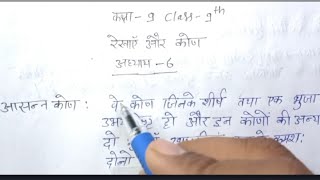 कक्षा-9 Class-9th
रेखाएँ और कोण
अध्याय-6
आसन्न कोण : वे कोण जिनके शीर्ष तथा एक भुजा
उभ हो और इन कोणों की अन्य
दो क्रमशः
दोनों